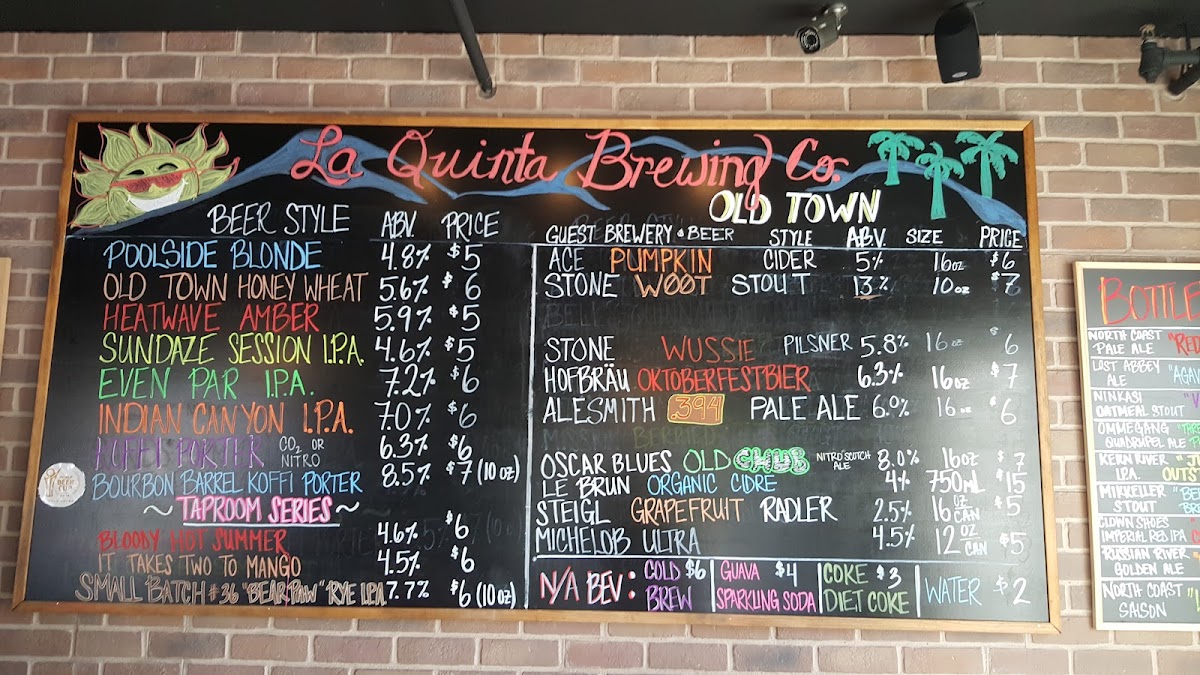 La Quinta Brewing Co.
OLD TOWN
BEER STYLE ABV. PRICE
POOLSIDE BLONDE 4.8% $5
OLD TOWN HONEY WHEAT 5.6% $6
HEATWAVE AMBER 5.9% $5
SUNDAZE SESSION I.P.A. 4.6% $5
EVEN PAR I.P.A. 7.2% $6
INDIAN CANYON I.P.A. 7.0% $6
KOFFI PORTER CO2 OR NITRO 6.3% $6
BOURBON BARREL KOFFI PORTER 8.5% $7 (10 oz)
~ TAPROOM SERIES ~
BLOODY HOT SUMMER 4.6% $6
IT TAKES TWO TO MANGO 4.5% $6
SMALL BATCH #36 "BEAR PAW" RYE I.P.A. 7.7% $6 (10 oz)
GUEST BREWERY & BEER STYLE ABV. SIZE PRICE
ACE PUMPKIN CIDER 5% 16oz $6
STONE W00T STOUT 13% 10oz $7
STONE WUSSIE PILSNER 5.8% 16oz $6
HOFBRÄU OKTOBERFESTBIER 6.3% 16oz $7
ALESMITH .394 PALE ALE 6.0% 16oz $6
OSCAR BLUES OLD CHUB NITRO SCOTCH ALE 8.0% 16oz $7
LE BRUN ORGANIC CIDRE 4% 750ML $15
STEIGL GRAPEFRUIT RADLER 2.5% 16 OZ CAN $5
MICHELOB ULTRA 4.5% 12 OZ CAN $5
N/A BEV: COLD BREW $6 GUAVA SPARKLING SODA $4 COKE DIET COKE $3 WATER $2
BOTTLE
NORTH COAST PALE ALE "RED
LOST ABBEY ALE "AGAV
NINKASI OATMEAL STOUT
OMMEGANG QUADRUPEL ALE
KERN RIVER I.P.A. OUTS
MIKKELLER STOUT "BE
CLOWN SHOES IMPERIAL RED IPA
RUSSIAN RIVER GOLDEN ALE
NORTH COAST SAISON